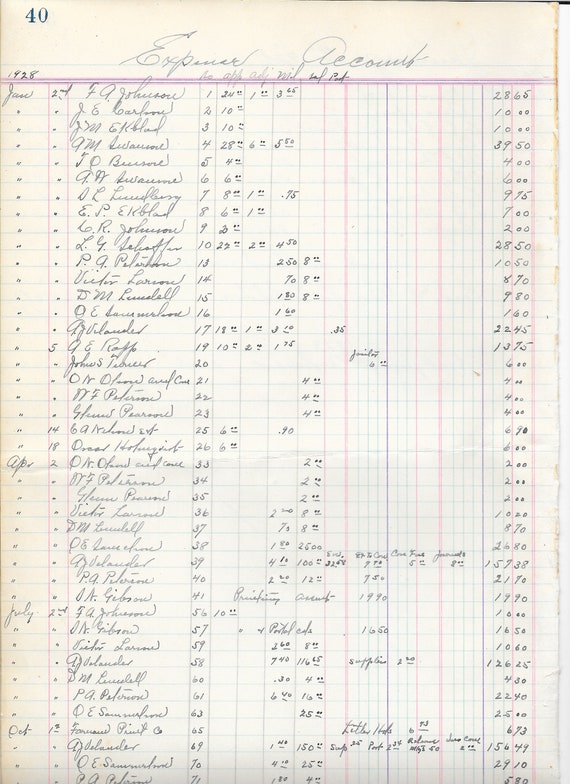 40
Expense Account
1928 No app adj Mil Sal Post
Jan 2nd F A Johnson 1 24 00 1 00 3 65 28 65
" " J. E. Carlson 2 10 00 10 00
" " J M Ekblad 3 10 00 10 00
" " A M Swanson 4 28 00 6 00 5 50 39 50
" " J O Benson 5 4 00 4 00
" " A W Swanson 6 6 00 6 00
" " S L Lundberg 7 8 00 1 00 .75 9 75
" " E. P. Ekblad 8 6 00 1 00 7 00
" " C. R. Johnson 9 2 00 2 00
" " L. G. Schaffer 10 22 00 2 00 4 50 28 50
" " P. A. Peterson 13 2 50 8 00 10 50
" " Victor Larson 14 70 8 00 8 70
" " D M Lundell 15 1 80 8 00 9 80
" " O E Sammelson 16 1 60 1 60
" " A J Velander 17 18 00 1 00 3 10 .35 22 45
" 5 A E Rapp 19 10 00 2 00 1 75 13 75
" " John S 20 Janitor 6 00 6 00
" " O N Olson and Care 21 4 00 4 00
" " W F Peterson 22 4 00 4 00
" " Glenn Pearson 23 4 00 4 00
" 14 C A Nelson Est 25 6 00 .90 6 90
" 18 Oscar Holmquist 26 6 00 6 00
Apr 2 O N Olson and care 33 2 00 2 00
" " W F Peterson 34 2 00 2 00
" " Glenn Pearson 35 2 00 2 00
" " Victor Larson 36 2 20 8 00 10 20
" " D M Lundell 37 70 8 00 8 70
" " O E Samelson 38 1 80 25 00 26 80
" " A J Velander 39 4 10 100 00 32 58 5 00 8 00 157 38
" " P. A. Peterson 40 2 20 12 00 7 50 21 70
" " S. N. Gibson 41 Printing 19 90 19 90
July 2nd F A Johnson 56 10 00 10 00
" " S N. Gibson 57 " & Postal cds 16 50 16 50
" " Victor Larson 59 2 60 8 00 10 60
" " A J Velander 58 7 40 116 65 supplies 2 20 126 25
" " D M Lundell 60 .30 4 00 4 30
" " P A Peterson 61 6 40 16 00 22 40
" " O E Sammelson 63 25 00 25 00
Oct 1st Farmers Print Co 65 Letter Hds 6 73 6 73
" " A J Velander 69 1 40 150 00 Sup 25 Post 2 34 50 2 00 156 49
" " O E Sammelson 70 4 10 25 00 29 10
" " P A Peterson 71 1 80 4 00 5 80